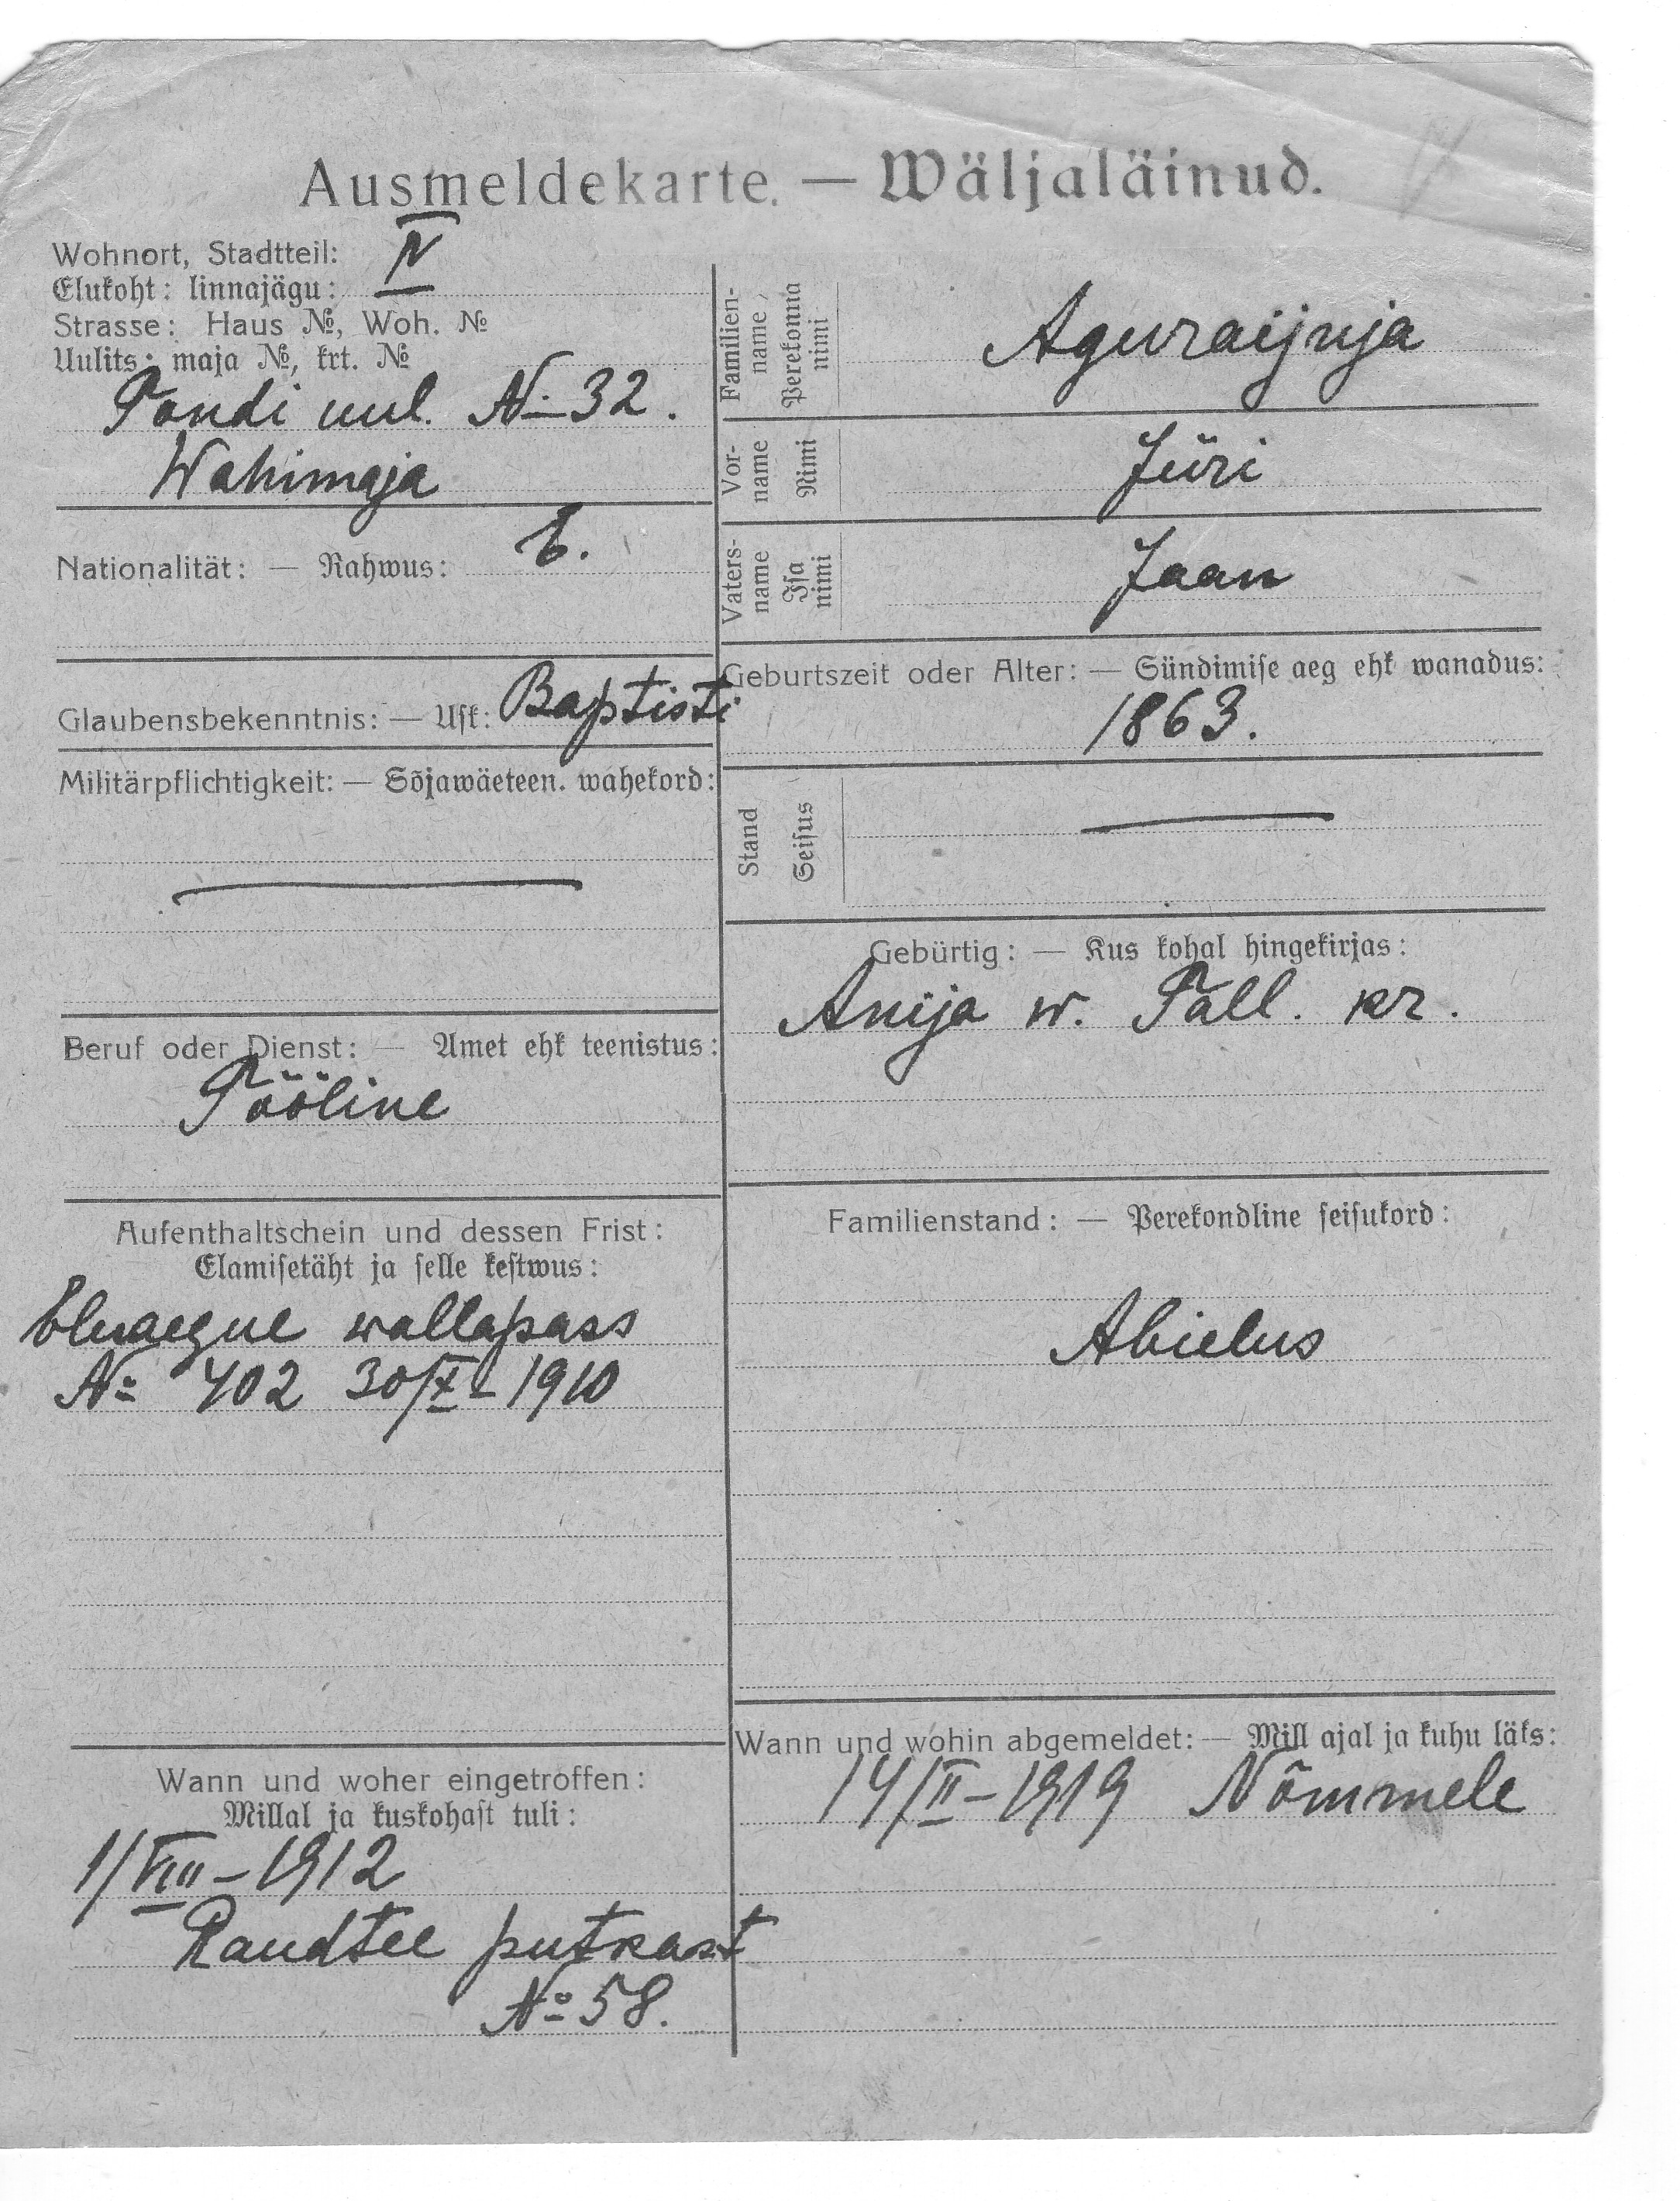 Ausmeldekarte. — Wäljaläinud.
Wohnort, Stadtteil: IV
Elukoht: linnajägu:
Strasse: Haus №, Woh. №
Uulits: maja №, krt. №
Tondi uul. № 32.
Wahimaja
Nationalität: — Rahwus: E.
Glaubensbekenntnis: — Usk: Baptisti
Militärpflichtigkeit: — Sõjawäeteen. wahekord:
Beruf oder Dienst: — Amet ehk teenistus:
Tööline
Aufenthaltschein und dessen Frist:
Elamisetäht ja selle kestwus:
Eluaegne wallapass
№ 402 30/X - 1910
Wann und woher eingetroffen:
Millal ja kuskohast tuli:
1/VIII - 1912
Raudtee putkast
№ 58.
Familien-name, Perekonna nimi
Aguraijuja
Vor-name Nimi
Jüri
Vaters-name Isa nimi
Jaan
Geburtszeit oder Alter: — Sündimise aeg ehk wanadus:
1863.
Stand Seisus
Gebürtig: — Kus kohal hingekirjas:
Anija w. Tall. kr.
Familienstand: — Perekondline seisukord:
Abielus
Wann und wohin abgemeldet: — Mill ajal ja kuhu läks:
14/II - 1919 Nõmmele